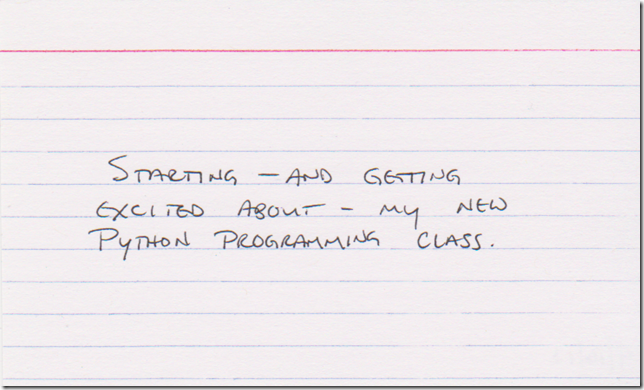 Starting – and getting
excited about – my new
Python programming class.